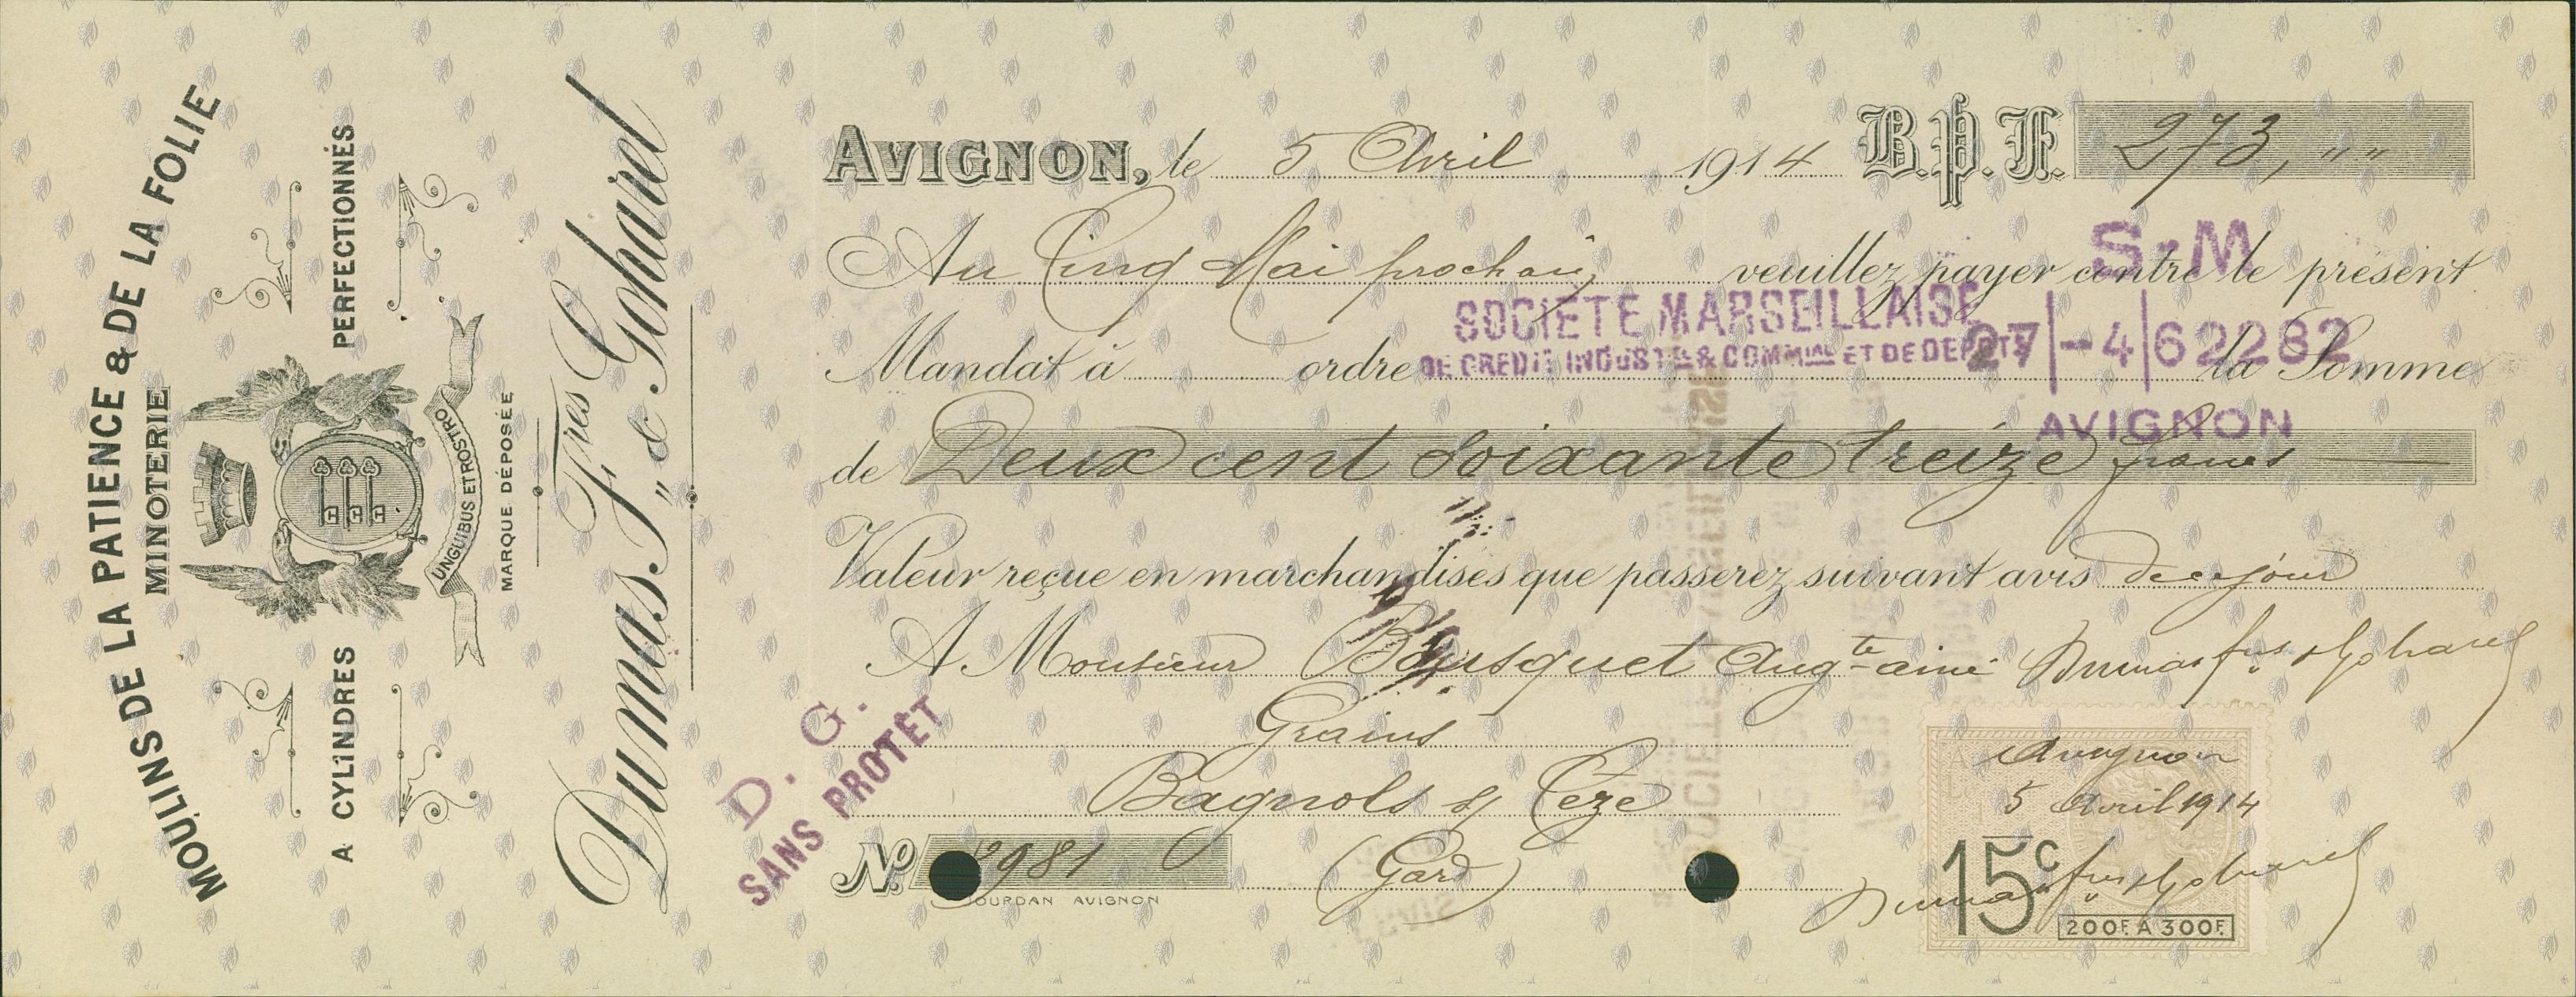 MOULINS DE LA PATIENCE & DE LA FOLIE
MINOTERIE
A CYLINDRES PERFECTIONNÉS
UNGUIBUS ET ROSTRO
MARQUE DÉPOSÉE
Dumas Fres & Gohard
AVIGNON, le 5 Avril 1914 B.P.F. 273, " "
Au Cinq Mai prochain veuillez payer contre le présent
S-M
Mandat à ordre la Somme
SOCIÉTÉ MARSEILLAISE
DE CREDIT INDUSTIEL & COMMIAL ET DE DEPOTS
27|-4|62282
AVIGNON
de Deux cent soixante treize francs
Valeur reçue en marchandises que passerez suivant avis de ce jour
A Monsieur Bousquet Augte ainé Dumas frs & Gohard
Grains
Bagnols s/ Cèze
(Gard)
No 981
JOURDAN AVIGNON
D. G.
SANS PROTÊT
Avignon
5 Avril 1914
Dumas frs & Gohard
15c
200F. A 300F.